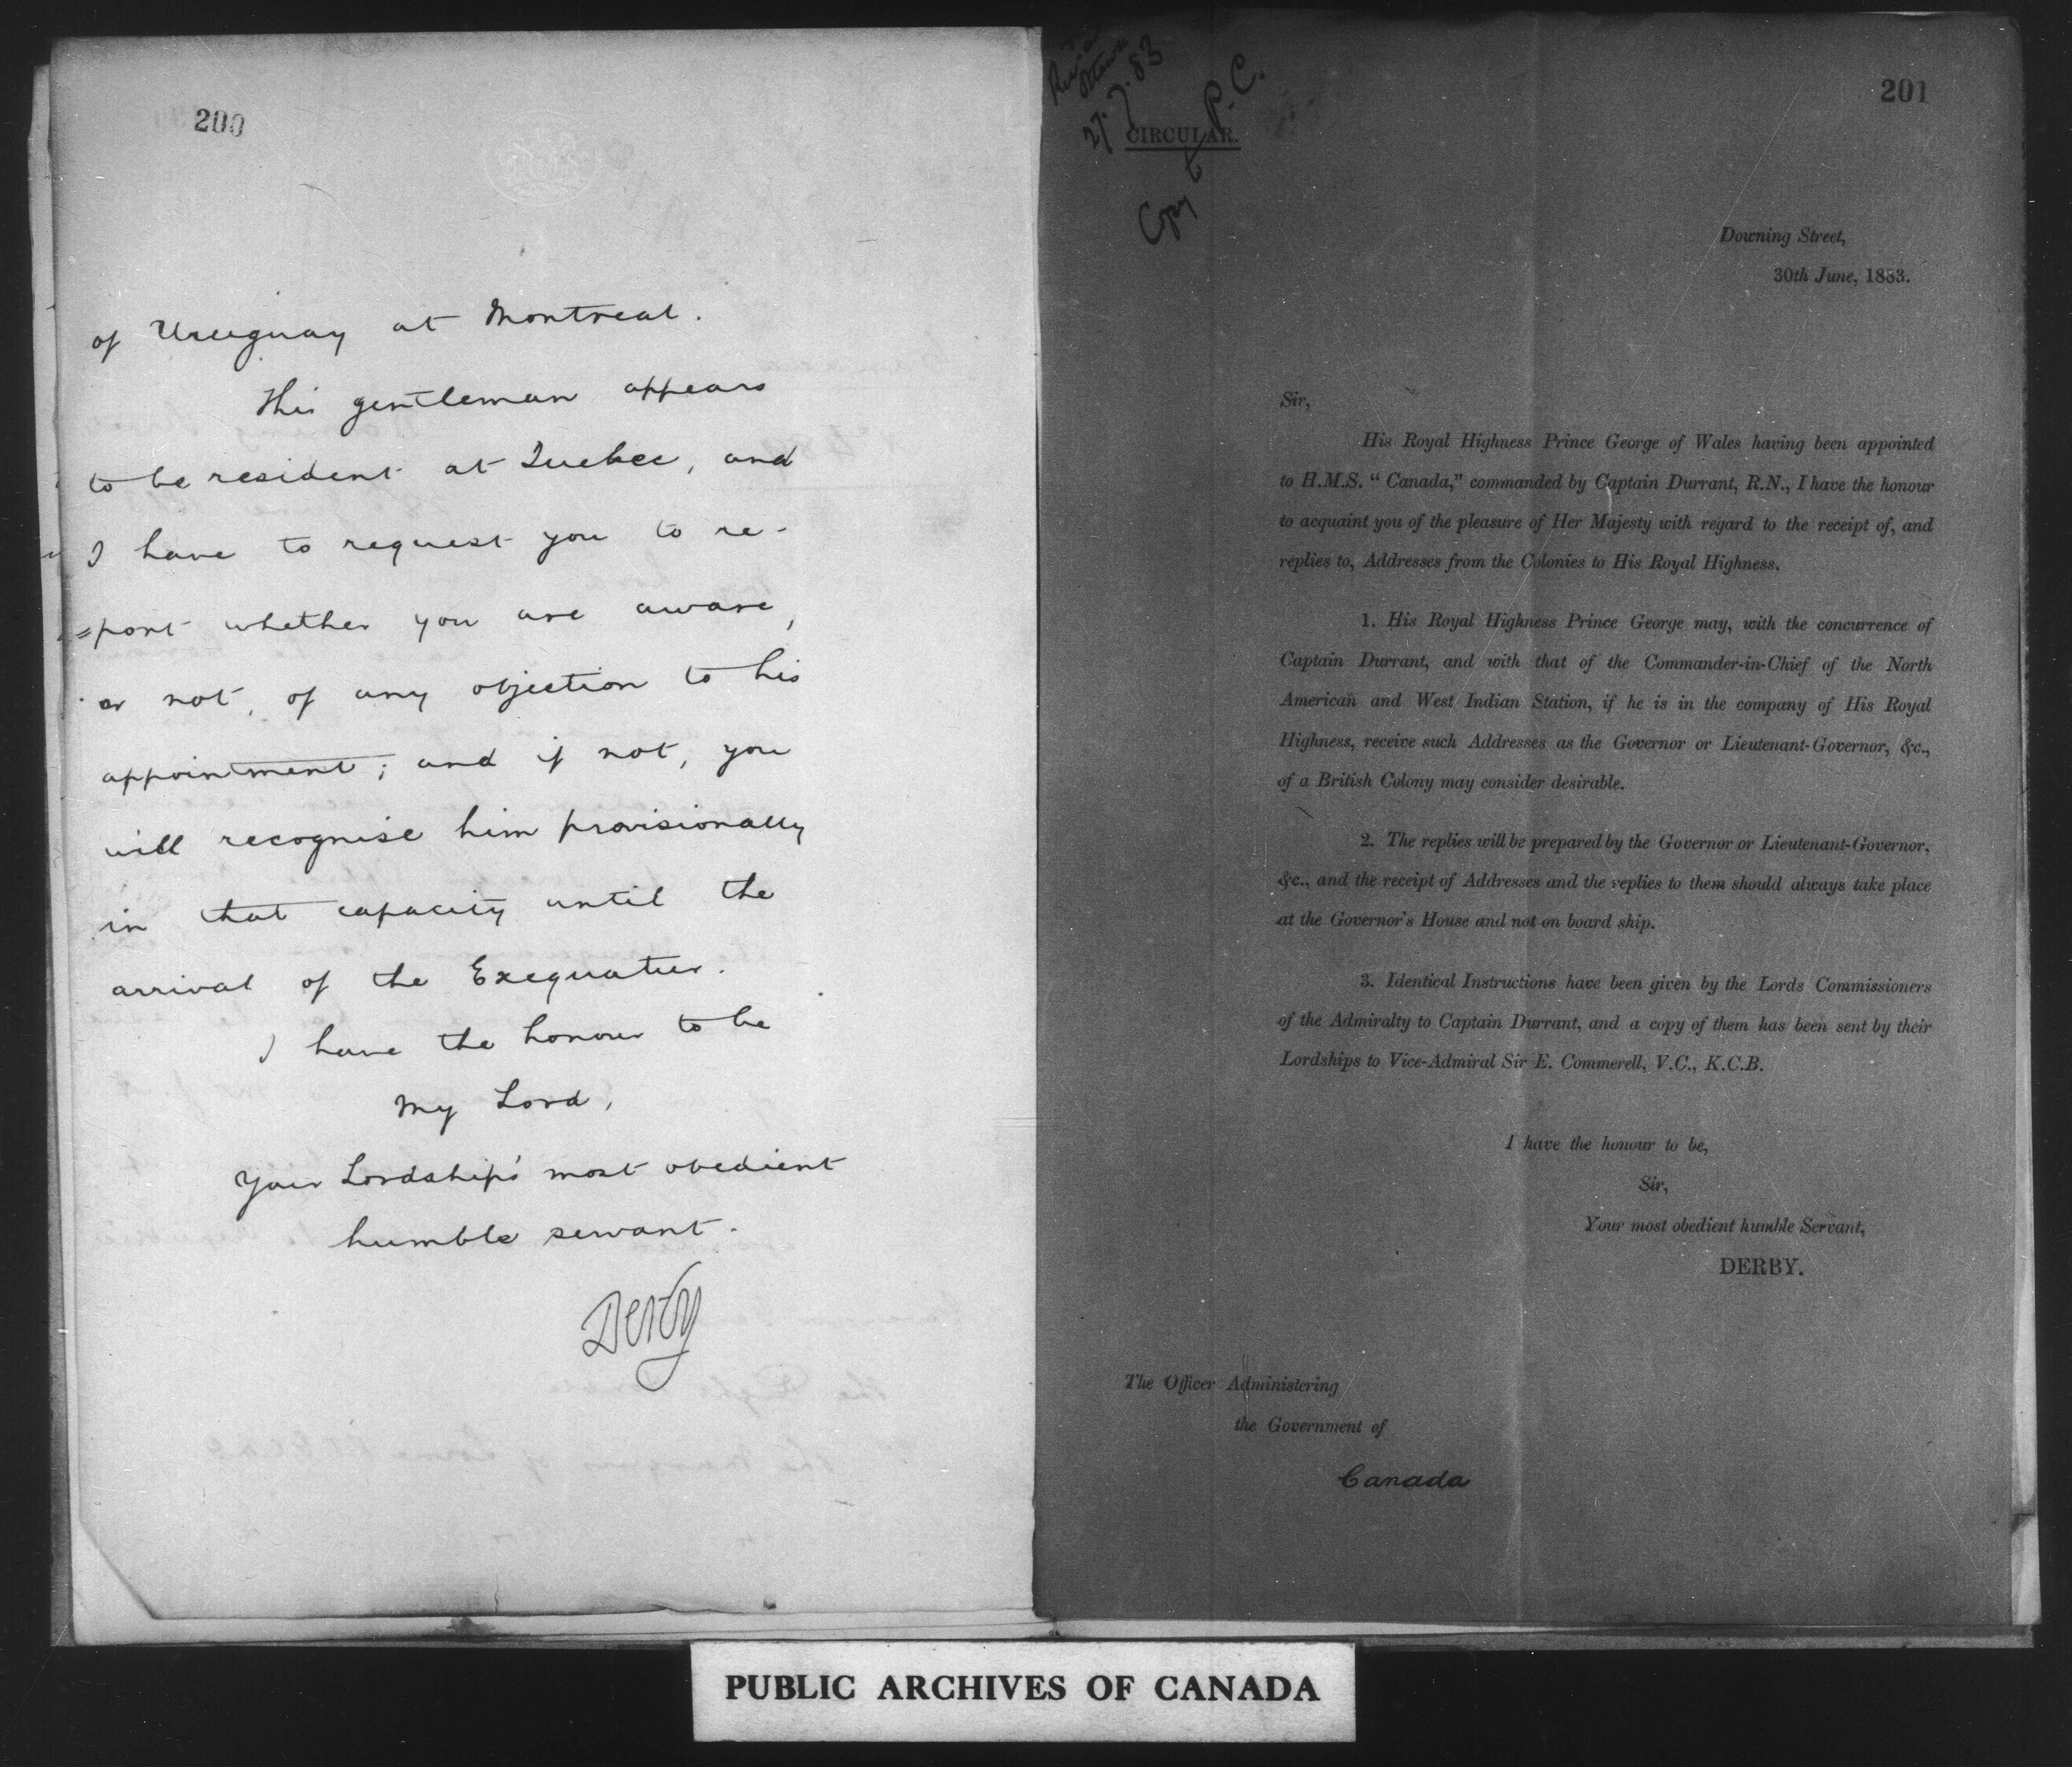 200
of Uruguay at Montreal.
This gentleman appears
to be resident at Quebec, and
I have to request you to re-
=port whether you are aware,
or not, of any objection to his
appointment; and if not, you
will recognise him provisionally
in that capacity until the
arrival of the Exequatur.
I have the honour to be
My Lord,
Your Lordship's most obedient
humble servant.
Derby
201
27.7.83
Copy to P.C.
CIRCULAR.
Downing Street,
30th June, 1883.
Sir,
His Royal Highness Prince George of Wales having been appointed
to H.M.S. "Canada," commanded by Captain Durrant, R.N., I have the honour
to acquaint you of the pleasure of Her Majesty with regard to the receipt of, and
replies to, Addresses from the Colonies to His Royal Highness.
1. His Royal Highness Prince George may, with the concurrence of
Captain Durrant, and with that of the Commander-in-Chief of the North
American and West Indian Station, if he is in the company of His Royal
Highness, receive such Addresses as the Governor or Lieutenant-Governor, &c.,
of a British Colony may consider desirable.
2. The replies will be prepared by the Governor or Lieutenant-Governor,
&c., and the receipt of Addresses and the replies to them should always take place
at the Governor's House and not on board ship.
3. Identical Instructions have been given by the Lords Commissioners
of the Admiralty to Captain Durrant, and a copy of them has been sent by their
Lordships to Vice-Admiral Sir E. Commerell, V.C., K.C.B.
I have the honour to be,
Sir,
Your most obedient humble Servant,
DERBY.
The Officer Administering
the Government of
Canada
PUBLIC ARCHIVES OF CANADA